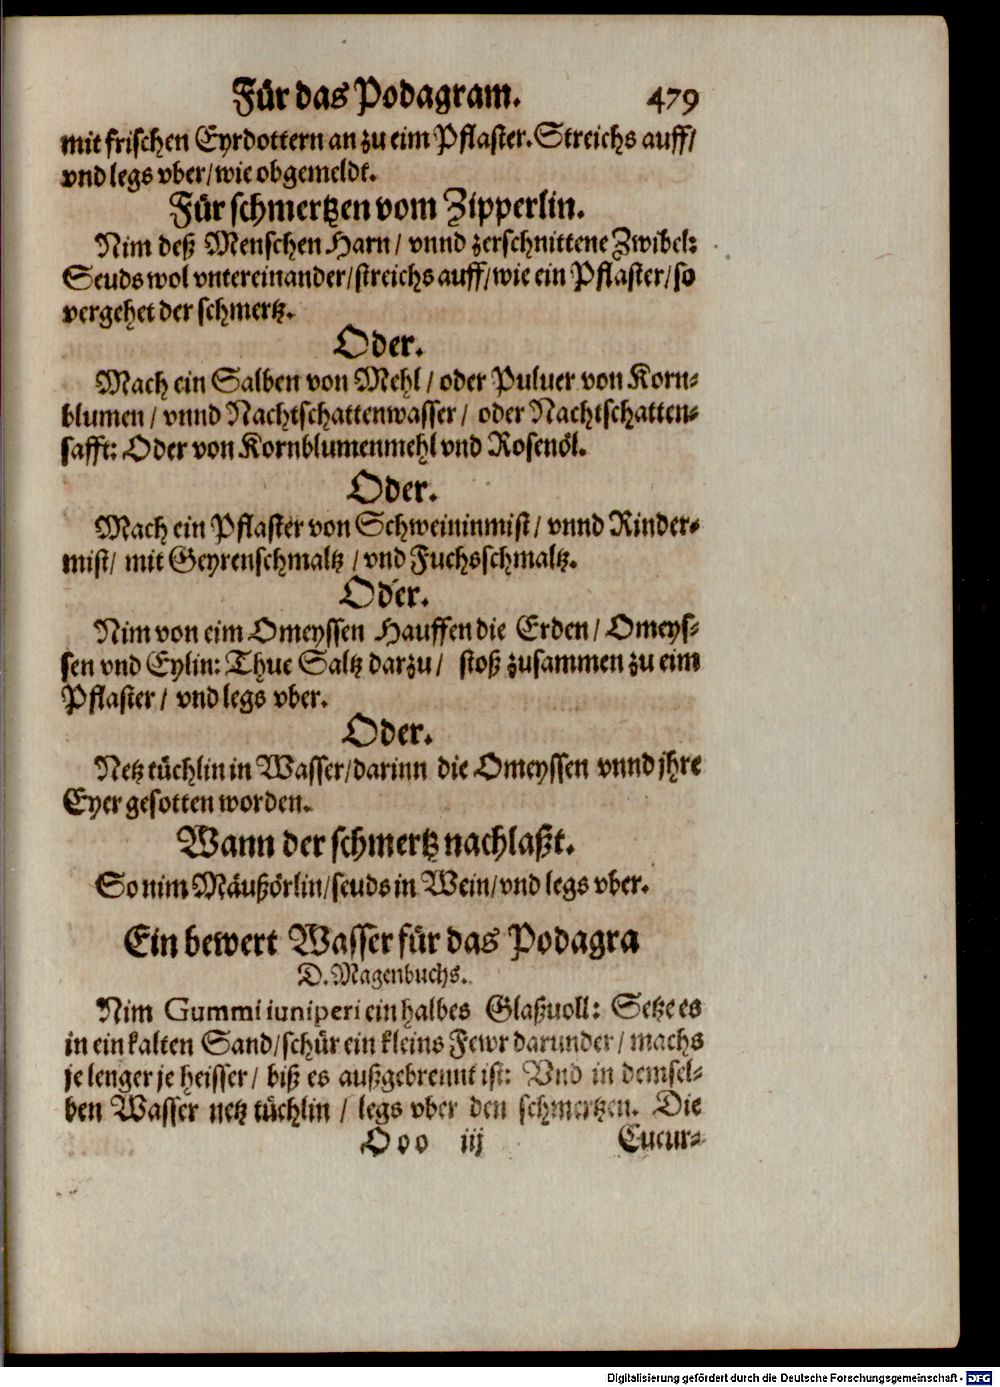 Für das Podagram. 479
mit frischen Eyrdottern an zu eim Pflaster. Streichs auff/
vnd legs vber/ wie obgemeldt.
Für schmertzen vom Zipperlin.
Nim deß Menschen Harn/ vnnd zerschnittene Zwibel:
Seuds wol vntereinander/ streichs auff/ wie ein Pflaster/ so
vergehet der schmertz.
Oder.
Mach ein Salben von Mehl/ oder Puluer von Korn-
blumen/ vnnd Nachtschattenwasser/ oder Nachtschatten-
safft: Oder von Kornblumenmehl vnd Rosenöl.
Oder.
Mach ein Pflaster von Schweininmist/ vnnd Rinder-
mist/ mit Geyrenschmaltz/ vnd Fuchsschmaltz.
Oder.
Nim von eim Omeyssen Hauffen die Erden/ Omeys-
sen vnd Eylin: Thue Saltz darzu/ stoß zusammen zu eim
Pflaster/ vnd legs vber.
Oder.
Netz tüchlin in Wasser/ darinn die Omeyssen vnnd jhre
Eyer gesotten worden.
Wann der schmertz nachlaßt.
So nim Mäußörlin/ seuds in Wein/ vnd legs vber.
Ein bewert Wasser für das Podagra
D. Magenbuchs.
Nim Gummi iuniperi ein halbes Glaßuoll: Setze es
in ein kalten Sand/ schür ein kleins Fewr darunder/ machs
je lenger je heisser/ biß es außgebrennt ist: Vnd in demsel-
ben Wasser netz tüchlin/ legs vber den schmertzen. Die
Ooo iij Cucur-
Digitalisierung gefördert durch die Deutsche Forschungsgemeinschaft - DFG